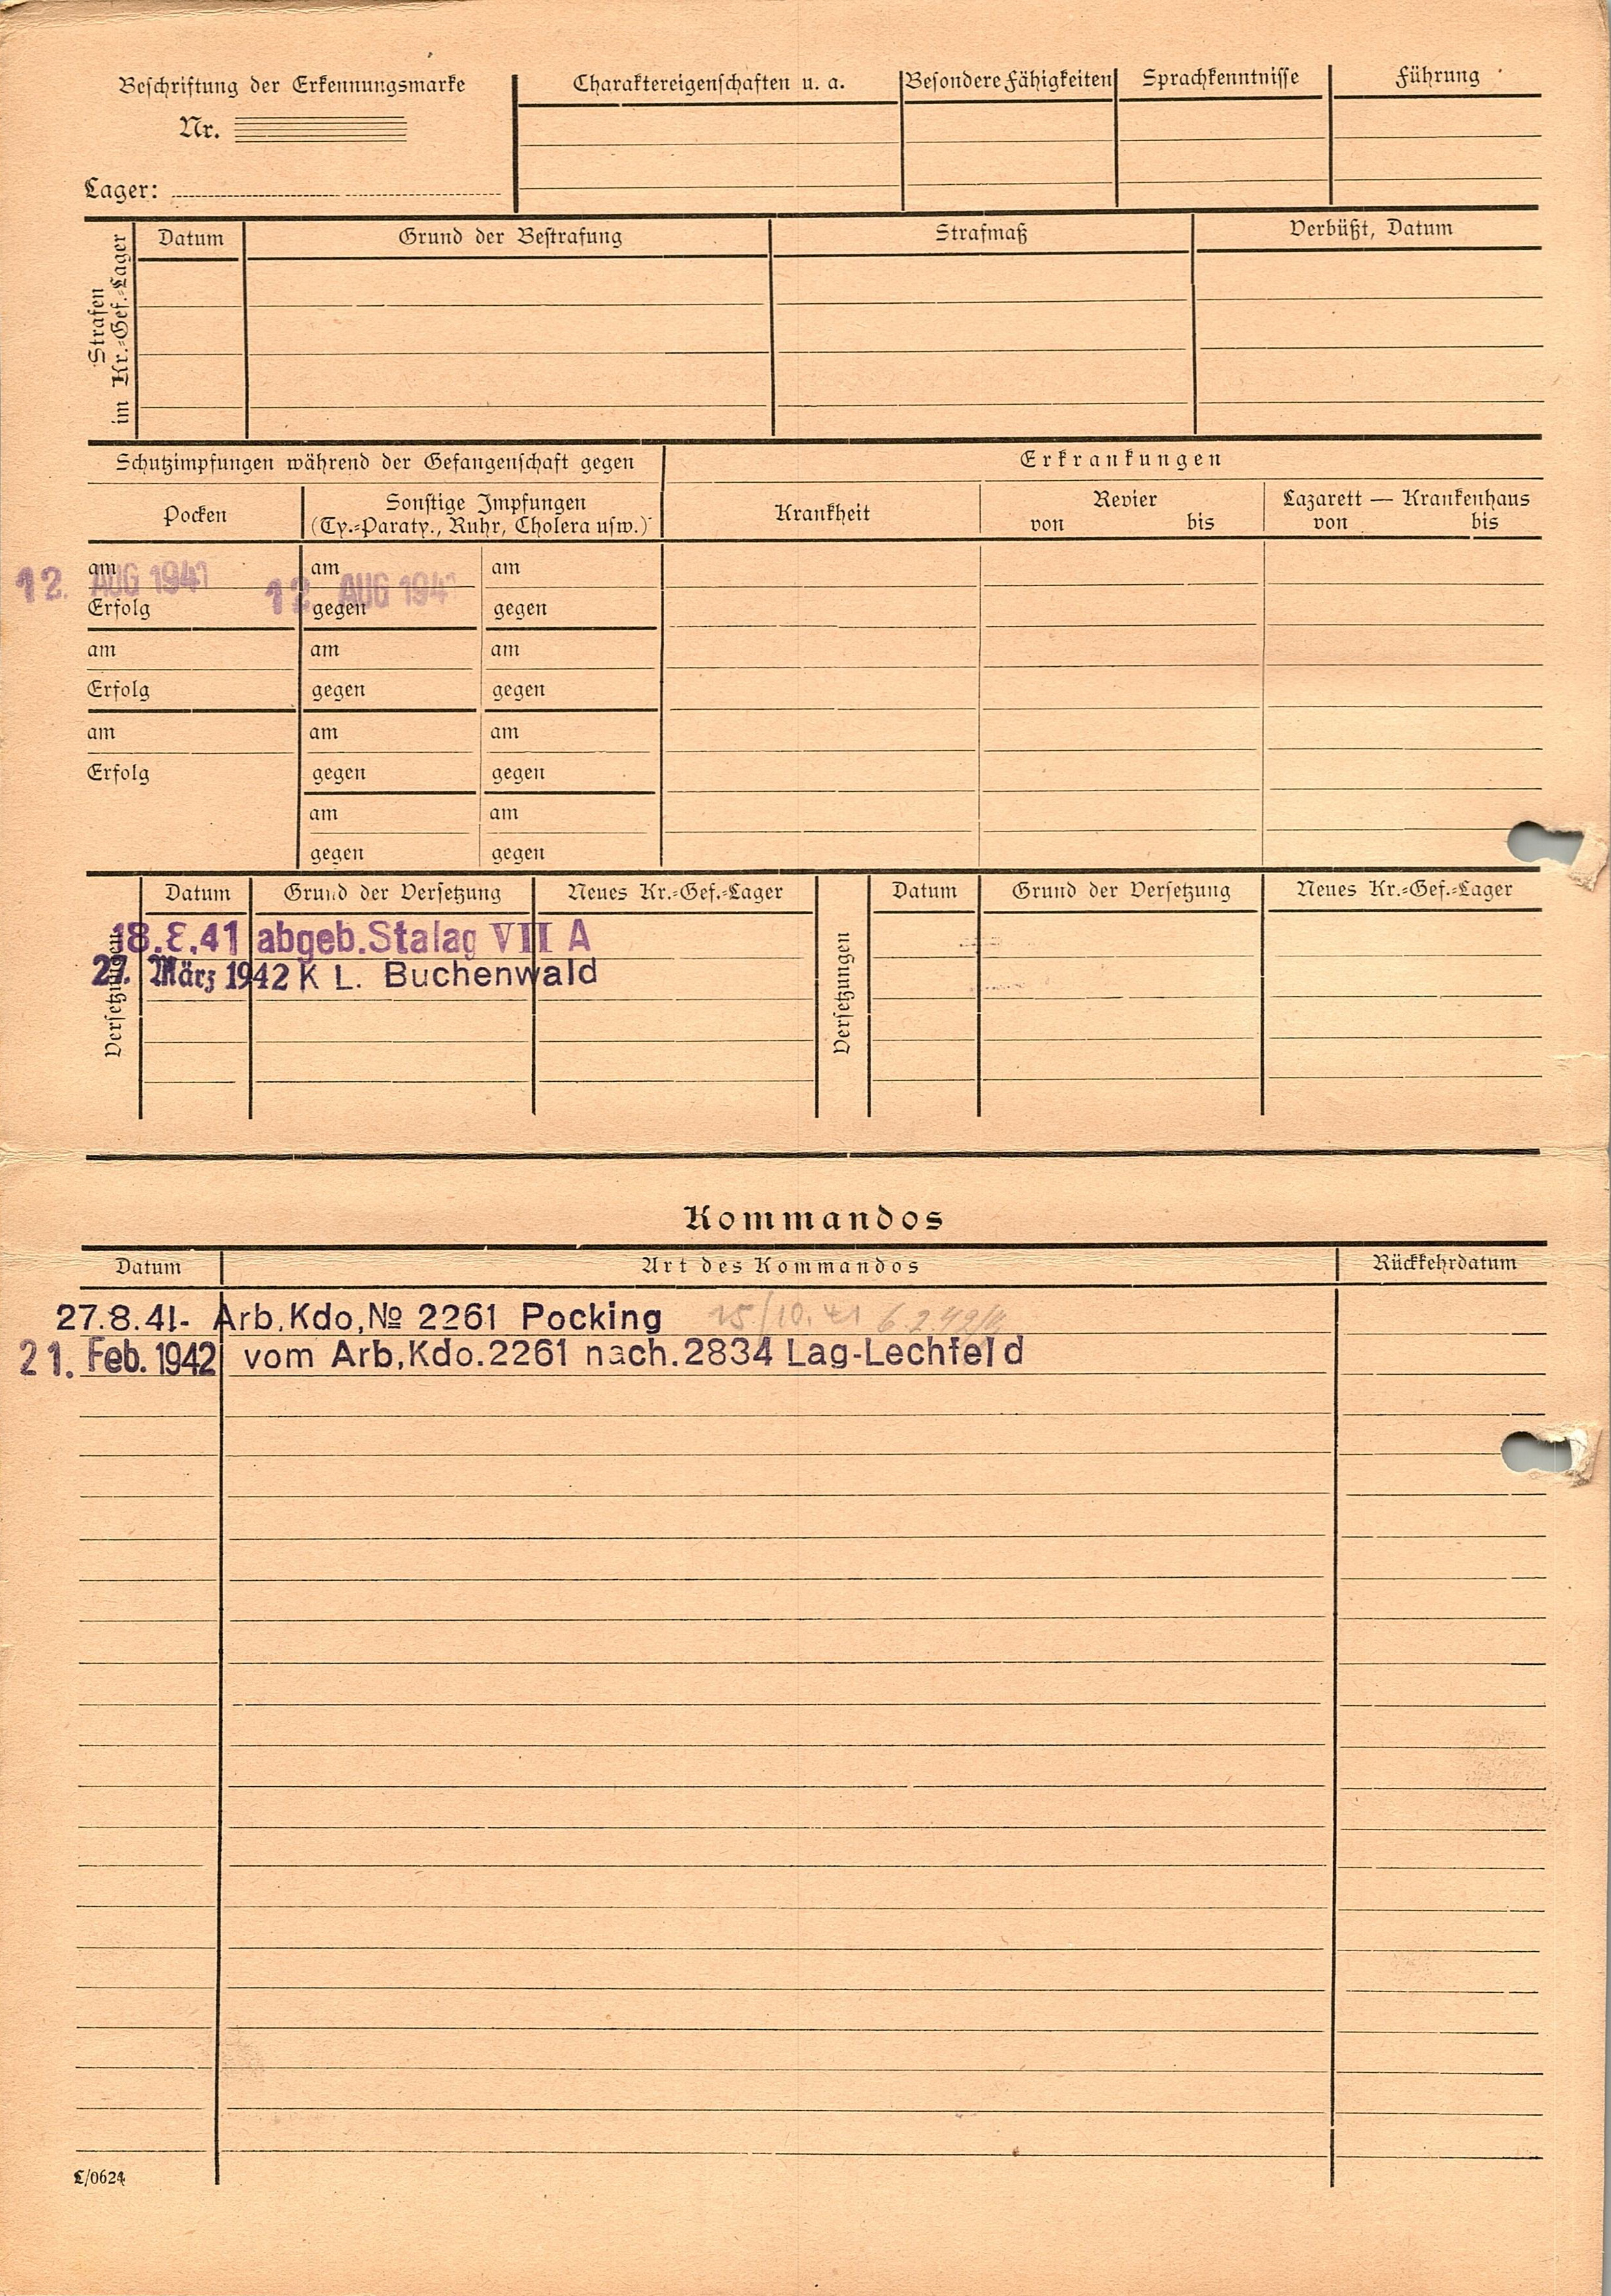 Beschriftung der Erkennungsmarke
Nr.
Lager:
Charaktereigenschaften u. a.
Besondere Fähigkeiten
Sprachkenntnisse
Führung
Strafen
im Kr.=Gef.=Lager
Datum
Grund der Bestrafung
Strafmaß
Verbüßt, Datum
Schutzimpfungen während der Gefangenschaft gegen
Erkrankungen
Pocken
Sonstige Impfungen
(Ty.=Paraty., Ruhr, Cholera usw.)
Krankheit
Revier
von bis
Lazarett — Krankenhaus
von bis
am am am
12. AUG 1941 12. AUG 194
Erfolg gegen gegen
am am am
Erfolg gegen gegen
am am am
Erfolg gegen gegen
am am
gegen gegen
Versetzungen
Datum Grund der Versetzung Neues Kr.=Gef.=Lager
18.8.41 abgeb.Stalag VII A
März 1942 K L. Buchenwald
Versetzungen
Datum Grund der Versetzung Neues Kr.=Gef.=Lager
Kommandos
Datum Art des Kommandos Rückkehrdatum
27.8.41- Arb.Kdo,№ 2261 Pocking 15./10. 41 6.2.42
21. Feb. 1942 vom Arb,Kdo.2261 nach.2834 Lag-Lechfeld
L/0624